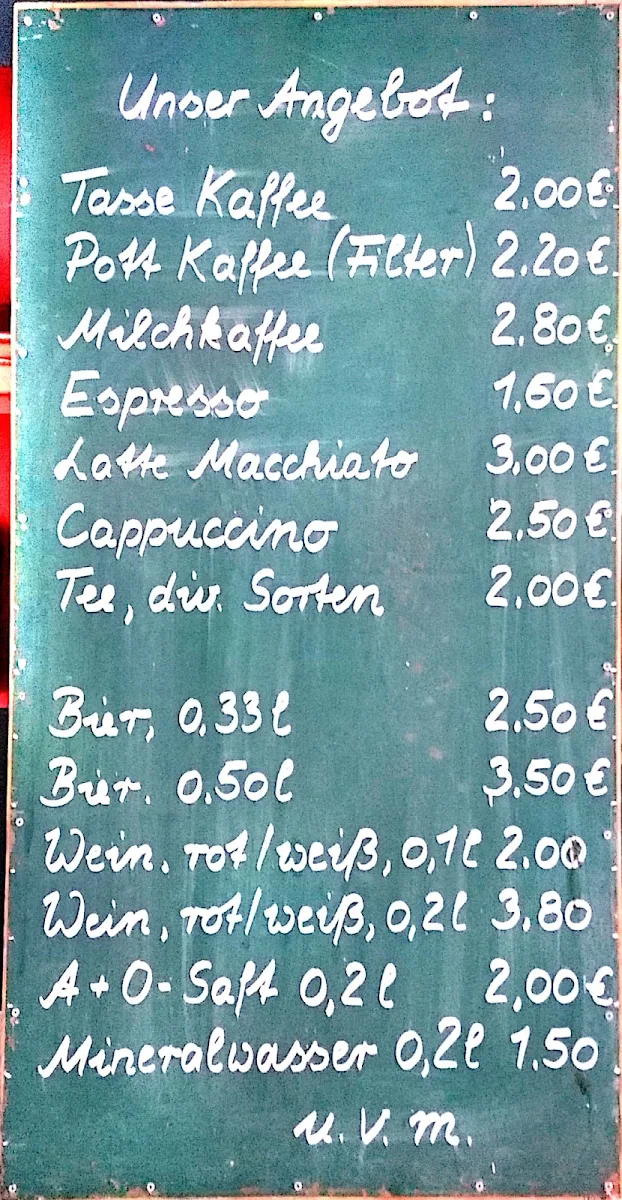 Unser Angebot:
Tasse Kaffee 2.00€
Pott Kaffee (Filter) 2.20€
Milchkaffee 2.80€
Espresso 1.60€
Latte Macchiato 3.00€
Cappuccino 2.50€
Tee, div. Sorten 2.00€
Bier, 0.33l 2.50€
Bier. 0.50l 3.50€
Wein. rot/weiß, 0,1l 2.00
Wein, rot/weiß, 0,2l 3.80
A+O-Saft 0,2l 2,00€
Mineralwasser 0,2l 1.50
u.v.m.